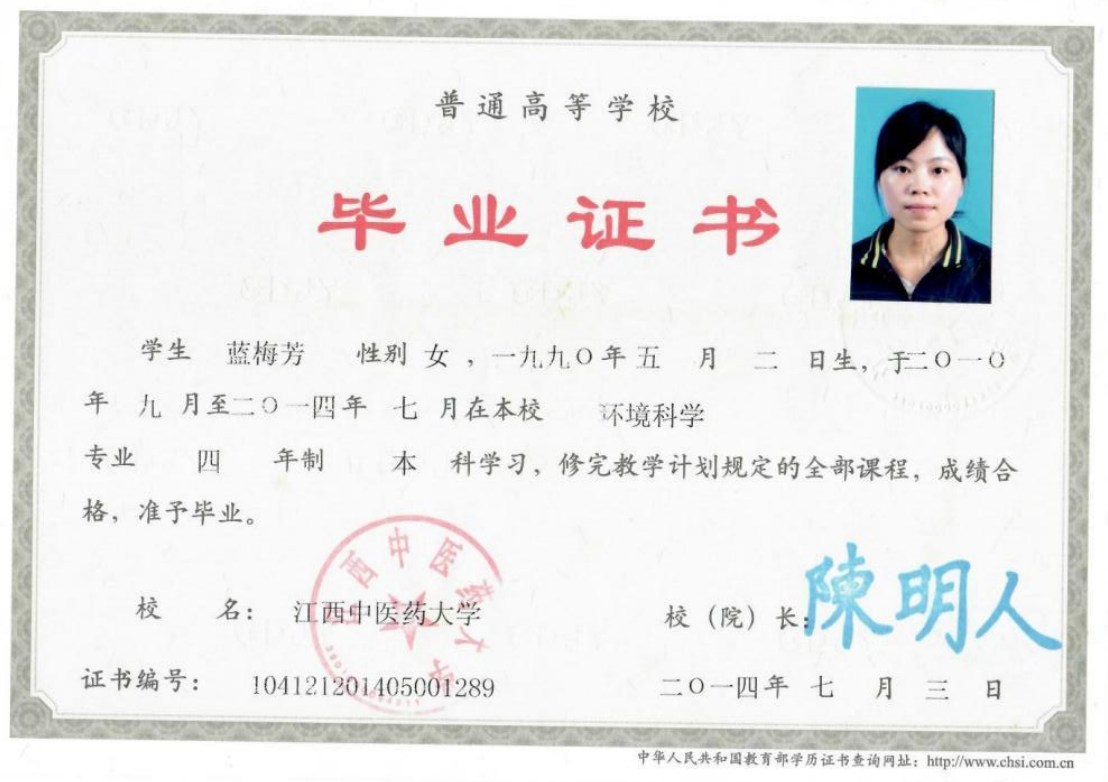 普通高等学校
毕业证书
学生 蓝梅芳 性别 女，一九九〇年 五 月 二 日生，于二〇一〇
年 九 月至二〇一四年 七 月在本校 环境科学
专业 四 年制 本 科学习，修完教学计划规定的全部课程，成绩合
格，准予毕业。
江西中医药大学
校 名： 江西中医药大学
校（院）长： 陳明人
证书编号： 104121201405001289
二〇一四年 七 月 三 日
中华人民共和国教育部学历证书查询网址：http://www.chsi.com.cn